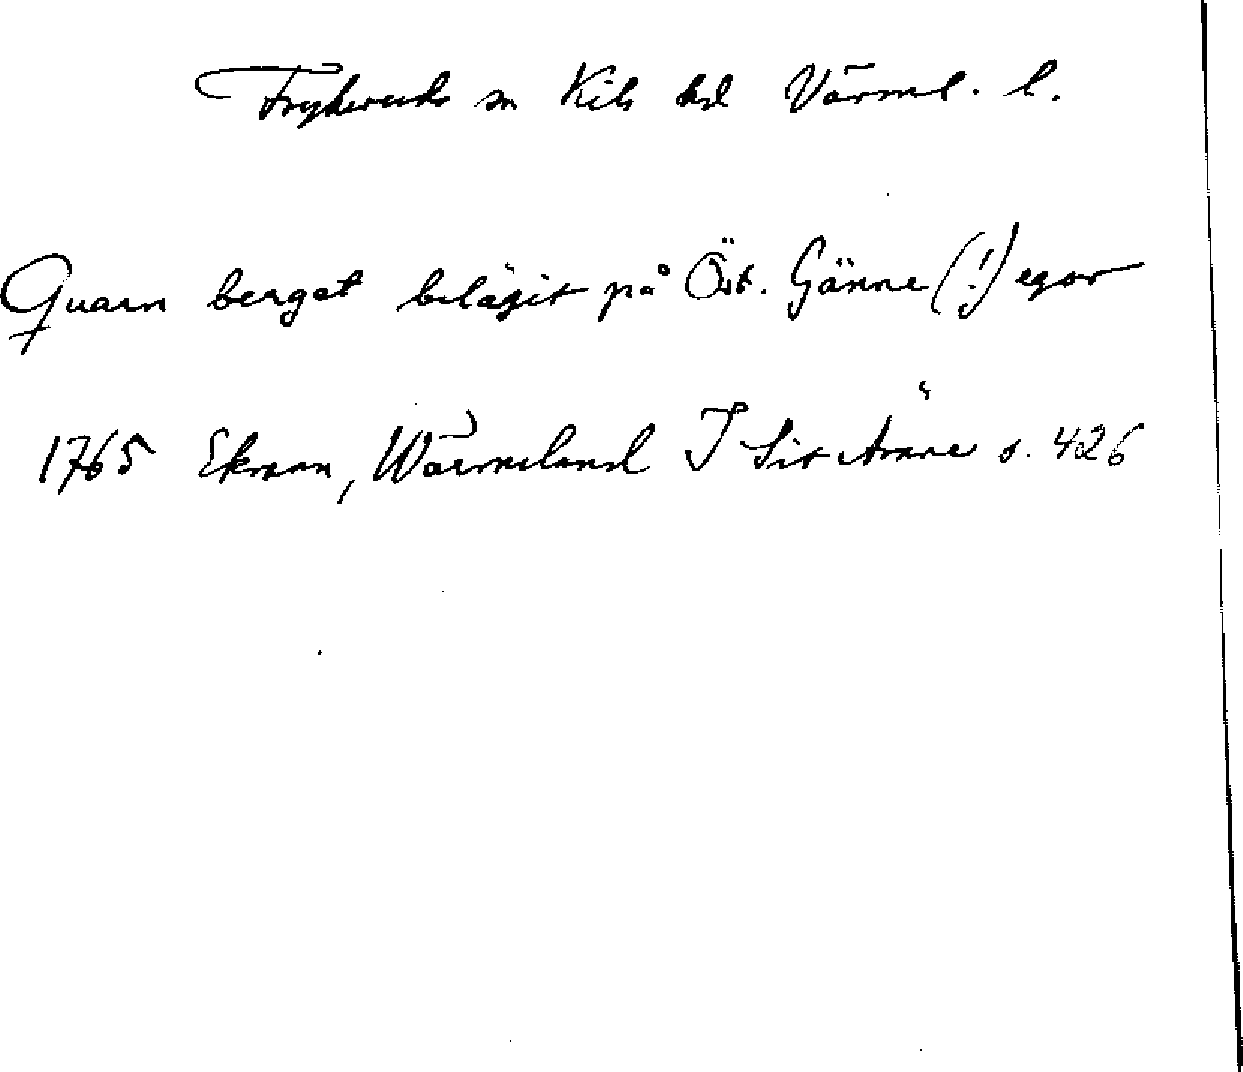 Frykeruds sn Kils hd Värml. l.
Quarn berget belägit på Öst. Gänne (!) egor
1765 Ekman, Wärmeland I sitt ämne s. 426